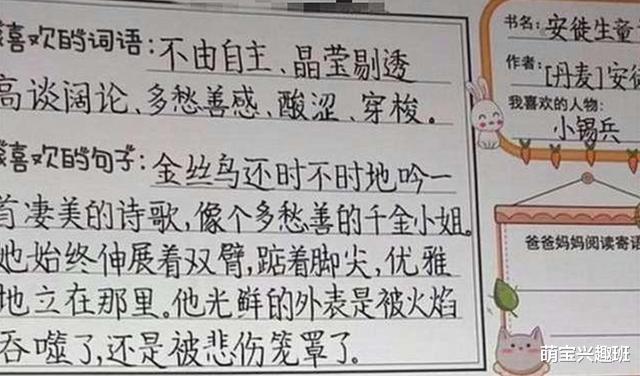 喜欢的词语:不由自主、晶莹剔透
高谈阔论、多愁善感、酸涩、穿梭。
喜欢的句子:金丝鸟还时不时地吟一
首凄美的诗歌,像个多愁善的千金小姐。
她始终伸展着双臂,踮着脚尖,优雅
地立在那里。他光鲜的外表是被火焰
吞噬了,还是被悲伤笼罩了。
书名:安徒生童
作者:[丹麦]安徒
我喜欢的人物:
小锡兵
爸爸妈妈阅读寄语
萌宝兴趣班